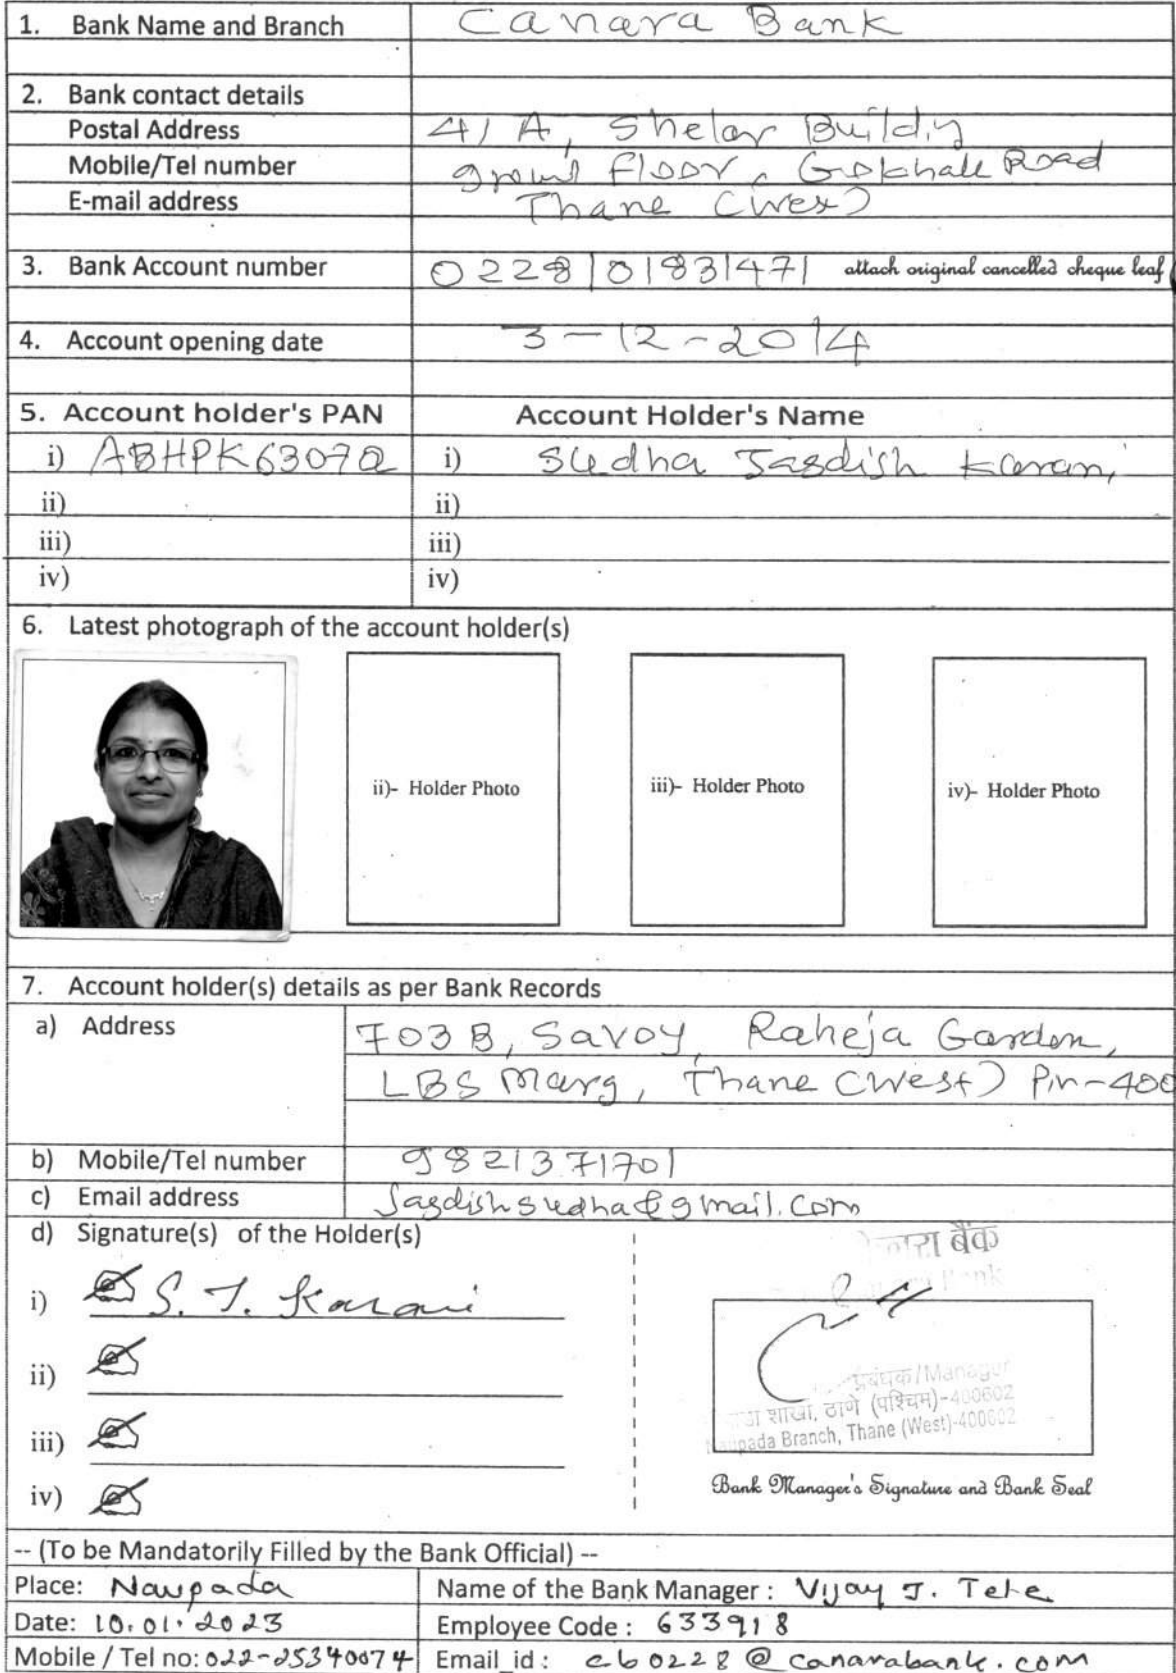 1. Bank Name and Branch Canara Bank
2. Bank contact details
Postal Address 41 A, Shelar Building
Mobile/Tel number ground Floor, Gokhale Road
E-mail address Thane (West)
3. Bank Account number 0228101831471 attach original cancelled cheque leaf
4. Account opening date 3-12-2014
5. Account holder's PAN Account Holder's Name
i) ABHPK6307Q i) Sudha Jagdish Karani
ii) ii)
iii) iii)
iv) iv)
6. Latest photograph of the account holder(s)
ii)- Holder Photo iii)- Holder Photo iv)- Holder Photo
7. Account holder(s) details as per Bank Records
a) Address 703 B, Savoy, Raheja Garden,
LBS Marg, Thane (West) Pin-400
b) Mobile/Tel number 9821371701
c) Email address Jagdishsudha@gmail.com
d) Signature(s) of the Holder(s)
बैंक
i) S. J. Karani
ii)
प्रबंधक/Manager
शाखा, ठाणे (पश्चिम)-400602
iii) Naupada Branch, Thane (West)-400602
iv) Bank Manager's Signature and Bank Seal
-- (To be Mandatorily Filled by the Bank Official) --
Place: Naupada Name of the Bank Manager : Vijay J. Tele
Date: 10.01.2023 Employee Code : 633918
Mobile / Tel no: 022-25340074 Email id : cb0228@canarabank.com